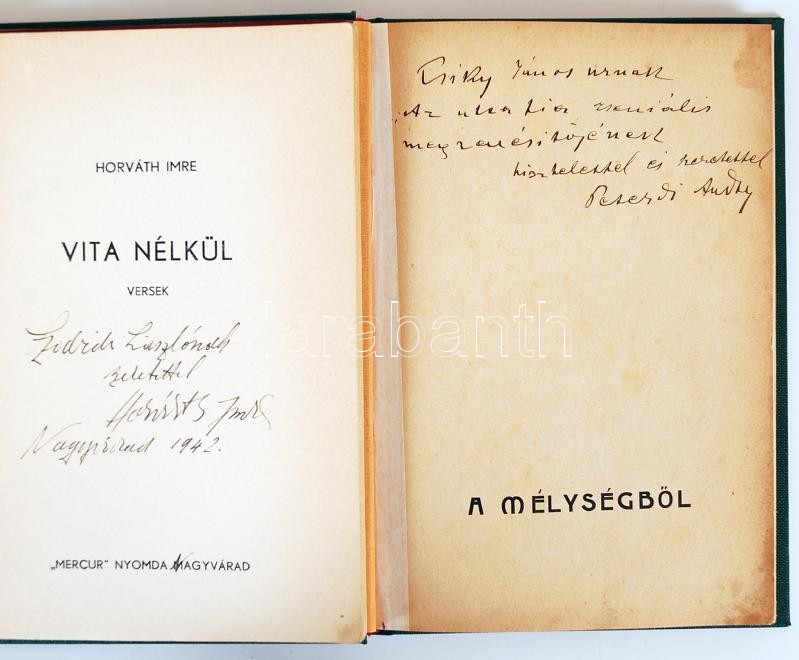 HORVÁTH IMRE
VITA NÉLKÜL
VERSEK
Lászlónak
szeretettel
Horváth Imre
Nagyvárad 1942.
"MERCUR" NYOMDA NAGYVÁRAD
Csiky János urnak
"Az utca fia zseniális
megzenésítőjének
tisztelettel és szeretettel
Peterdi Andor
A MÉLYSÉGBŐL
darabanth